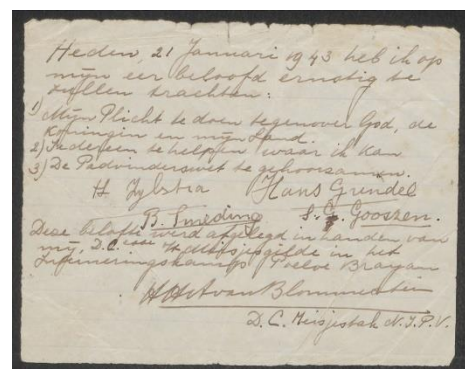 Heden, 21 Januari 1943 heb ik op
mijn eer beloofd ernstig te
zullen trachten:
1) Mijn Plicht te doen tegenover God, de
Koningin en mijn Land.
2) Iedereen te helpen waar ik kan
3) De Padvinderswet te gehoorzamen.
H Zylstra Hans Grendel
B. Smeding S. G. Gooszen.
Deze belofte werd afgelegd in handen van
mij, D.C. van het Meisjesgilde in het
Interneringskamp Poeloe Brayan
van Blommestein
D.C. Meisjestak N.I.P.V.